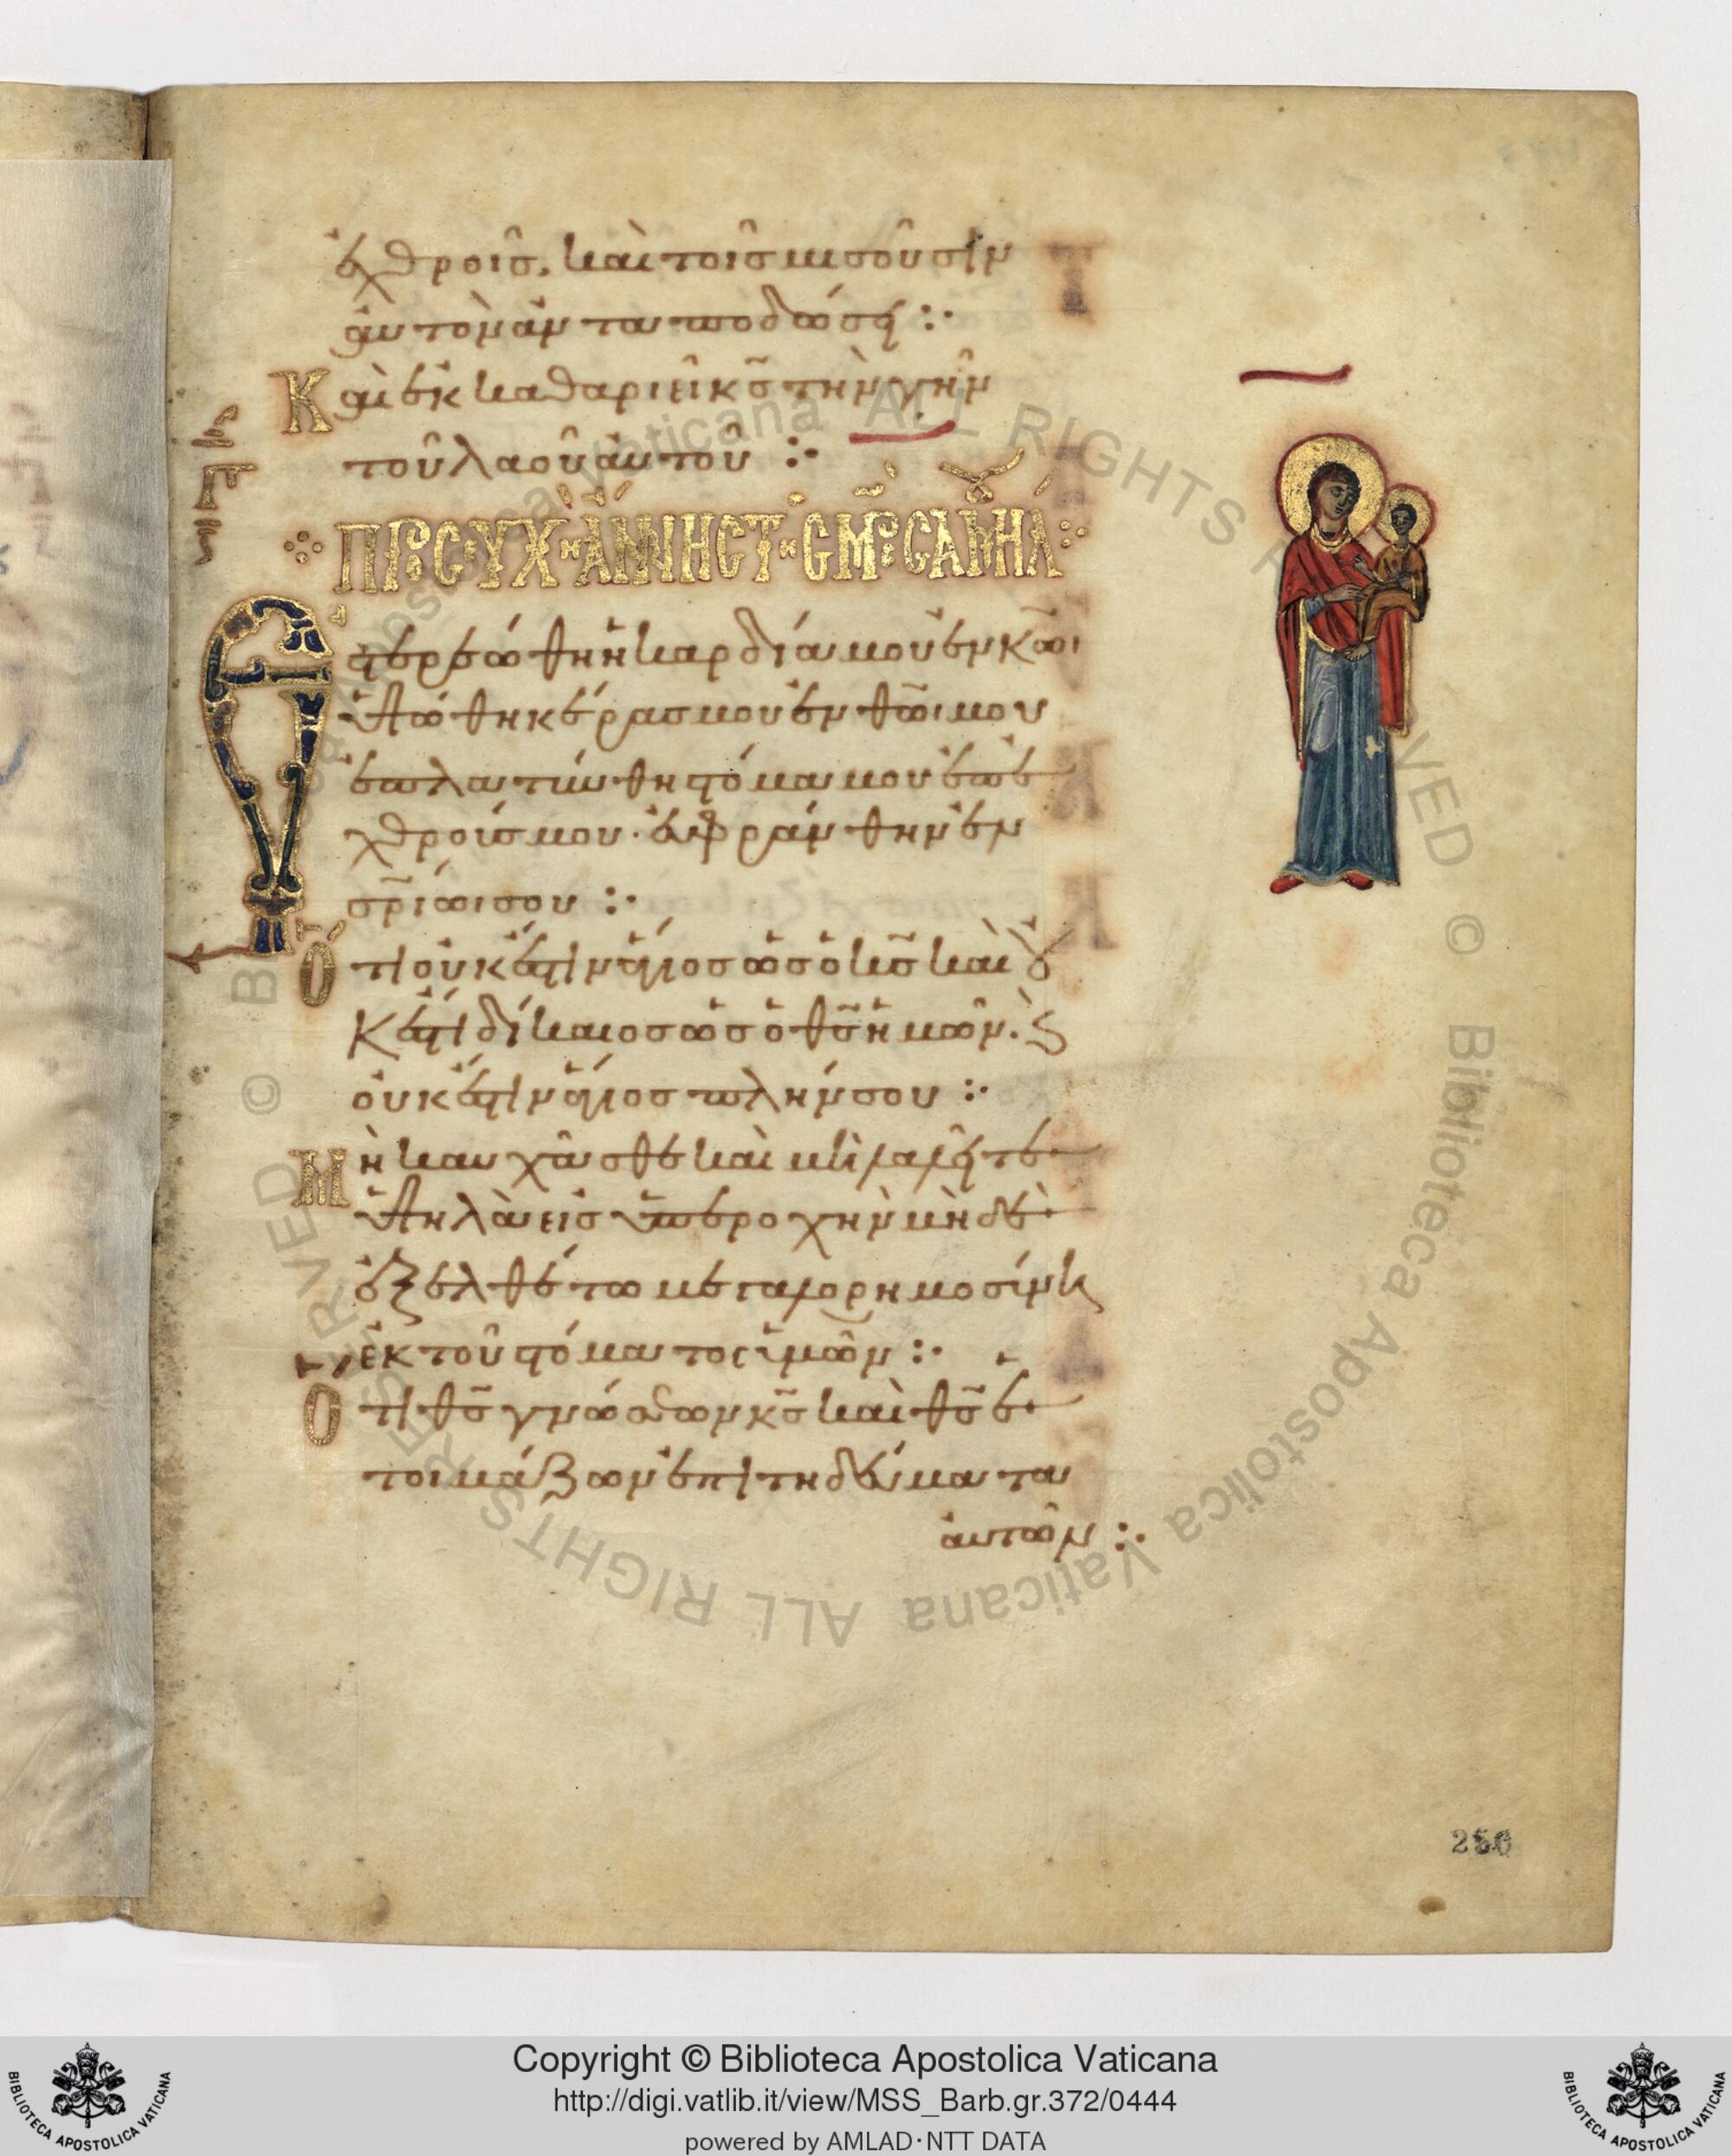 ἐχθροῖς, καὶ τοῖς μισοῦσιν
αὐτὸν ἀνταποδώσει :·
Καὶ ἐκκαθαριεῖ κ̅ς̅ τὴν γῆν
τοῦ λαοῦ αὐτοῦ :·
ΠΡΟСΕΥΧΗ ΑΝΝΗС ΤΗС ΜΡ̅С САΜΟΥΗΛ
Ἐ
στερεώθη ἡ καρδία μου ἐν κ̅ω̅ι
ὑψώθη κέρας μου ἐν θ̅ω̅ι μου
ἐπλατύνθη στόμα μου ἐπ' ἐ
χθρούς μου. εὐφράνθην ἐν
σ̅ρ̅ίωι σου :·
Ὅτι οὐκ ἔστιν ἅγιος ὡς ὁ κ̅ς̅ καὶ οὐ
κ ἔστι δίκαιος ὡς ὁ θ̅ς̅ ἡμῶν. ϗ
οὐκ ἔστιν ἅγιος πλήν σου :·
Μὴ καυχᾶσθε καὶ μὴ λαλεῖτε
ὑψηλὰ εἰς ὑπεροχὴν μὴ δὲ
ἐξελθέτω μεγαλορημοσύνη
ἐκ τοῦ στόματος ὑμῶν :·
Ὅτι θ̅ς̅ γνώσεων κ̅ς̅ καὶ θ̅ς̅ ἑ
τοιμάζων ἐπιτηδεύματα
αὐτῶν :·
250
© Biblioteca Apostolica Vaticana ALL RIGHTS RESERVED
© Biblioteca Apostolica Vaticana ALL RIGHTS RESERVED
BIBLIOTECA APOSTOLICA VATICANA
Copyright © Biblioteca Apostolica Vaticana
http://digi.vatlib.it/view/MSS_Barb.gr.372/0444
powered by AMLAD·NTT DATA
BIBLIOTECA APOSTOLICA VATICANA